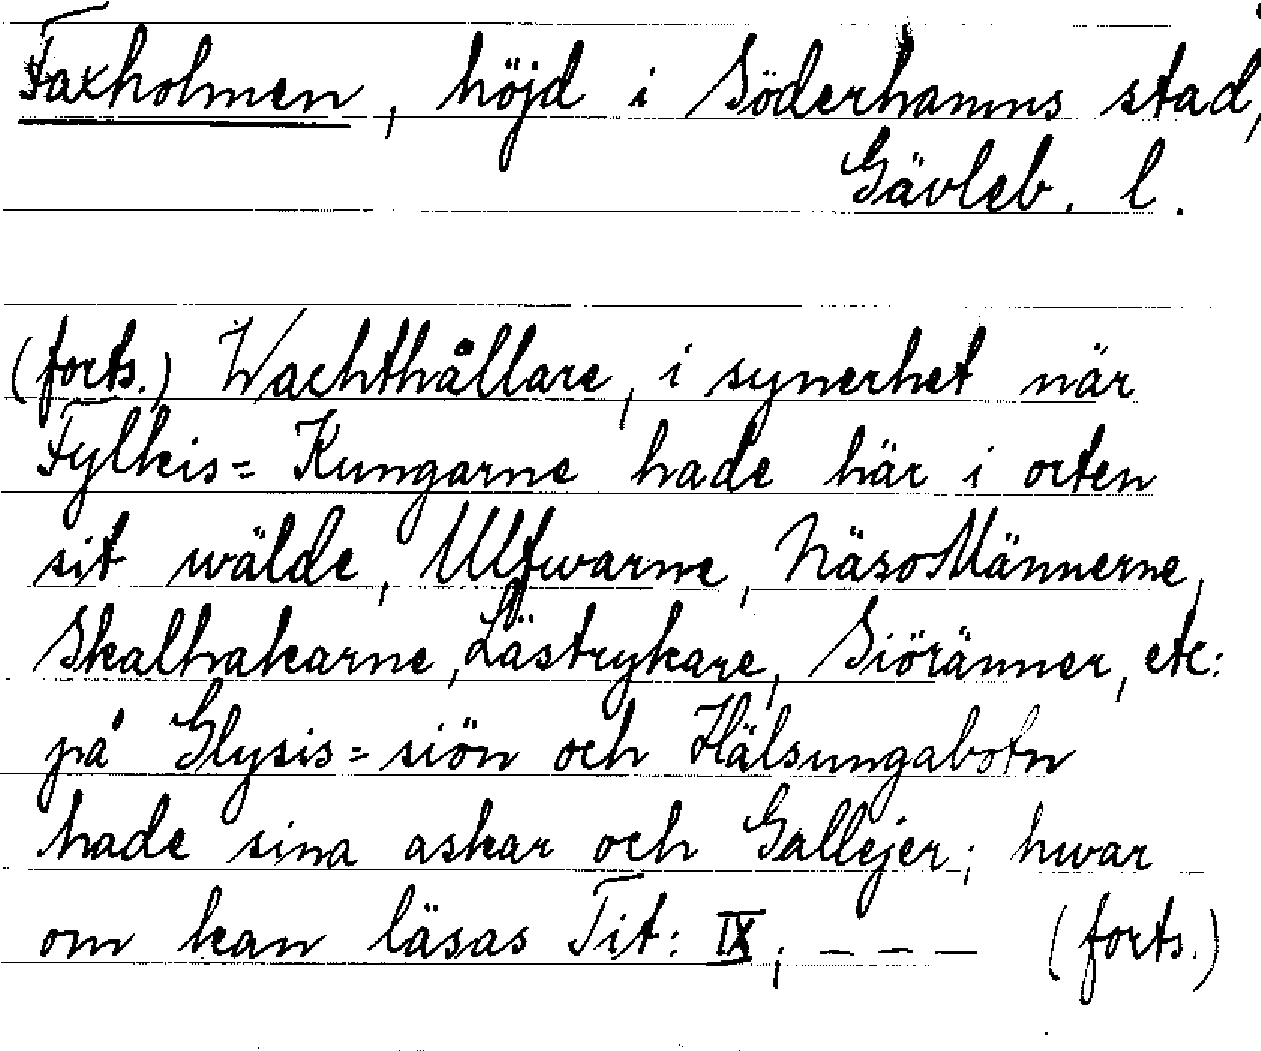 Faxholmen, höjd i Söderhamns stad,
Gävleb. l.
(forts.) Wachthållare, i synerhet när
Fylkis= Kungarne hade här i orten
sit wälde, Ulfwarne, NäsoMännerne,
Skalhakarne, Låstrykare, Siöränner, etc:
på Glysis=siön och Hälsungabotn
hade sina askar och Gallejer; hwar
om kan läsas Tit: IX; – – – (forts.)